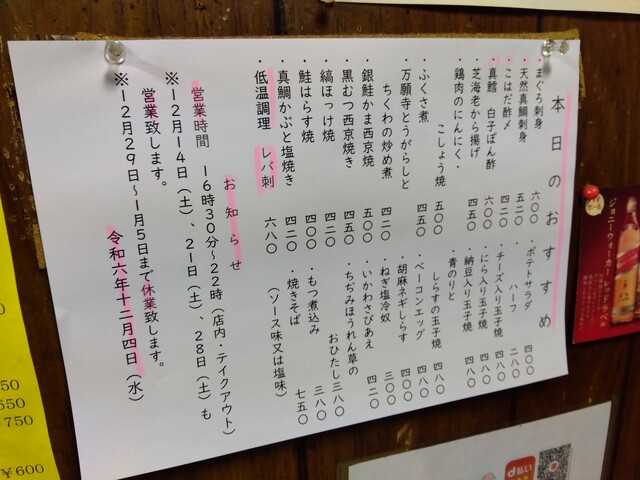 本日のおすすめ
・まぐろ刺身 六〇〇
・天然真鯛刺身 五二〇
・こはだ酢〆 四二〇
・真鱈 白子ぽん酢 六〇〇
・芝海老から揚げ 四五〇
・鶏肉のにんにく・
こしょう焼 五〇〇
・ふくさ煮 四五〇
・万願寺とうがらしと
ちくわの炒め煮 四二〇
・銀鮭かま西京焼 五〇〇
・黒むつ西京焼き 四五〇
・縞ほっけ焼 四二〇
・鮭はらす焼 四〇〇
・真鯛かぶと塩焼き 四二〇
・低温調理 レバ刺 六八〇
・ポテトサラダ 四〇〇
・ハーフ 二八〇
・チーズ入り玉子焼 四八〇
・にら入り玉子焼 四八〇
・納豆入り玉子焼 四八〇
・青のりと
しらすの玉子焼 四八〇
・ベーコンエッグ 四八〇
・胡麻ネギしらす 四五〇
・ねぎ塩冷奴 三〇〇
・いかわさびあえ 四二〇
・ちぢみほうれん草の
おひたし 三八〇
・もつ煮込み 三八〇
・焼きそば 七五〇
（ソース味又は塩味）
お知らせ
営業時間 16時30分～22時（店内・テイクアウト）
※12月14日（土）、21日（土）、28日（土）も
営業致します。
※12月29日～1月5日まで休業致します。
令和六年十二月四日（水）
ジョニーウォーカー レッドラベル
d払い
50
650
750
¥600